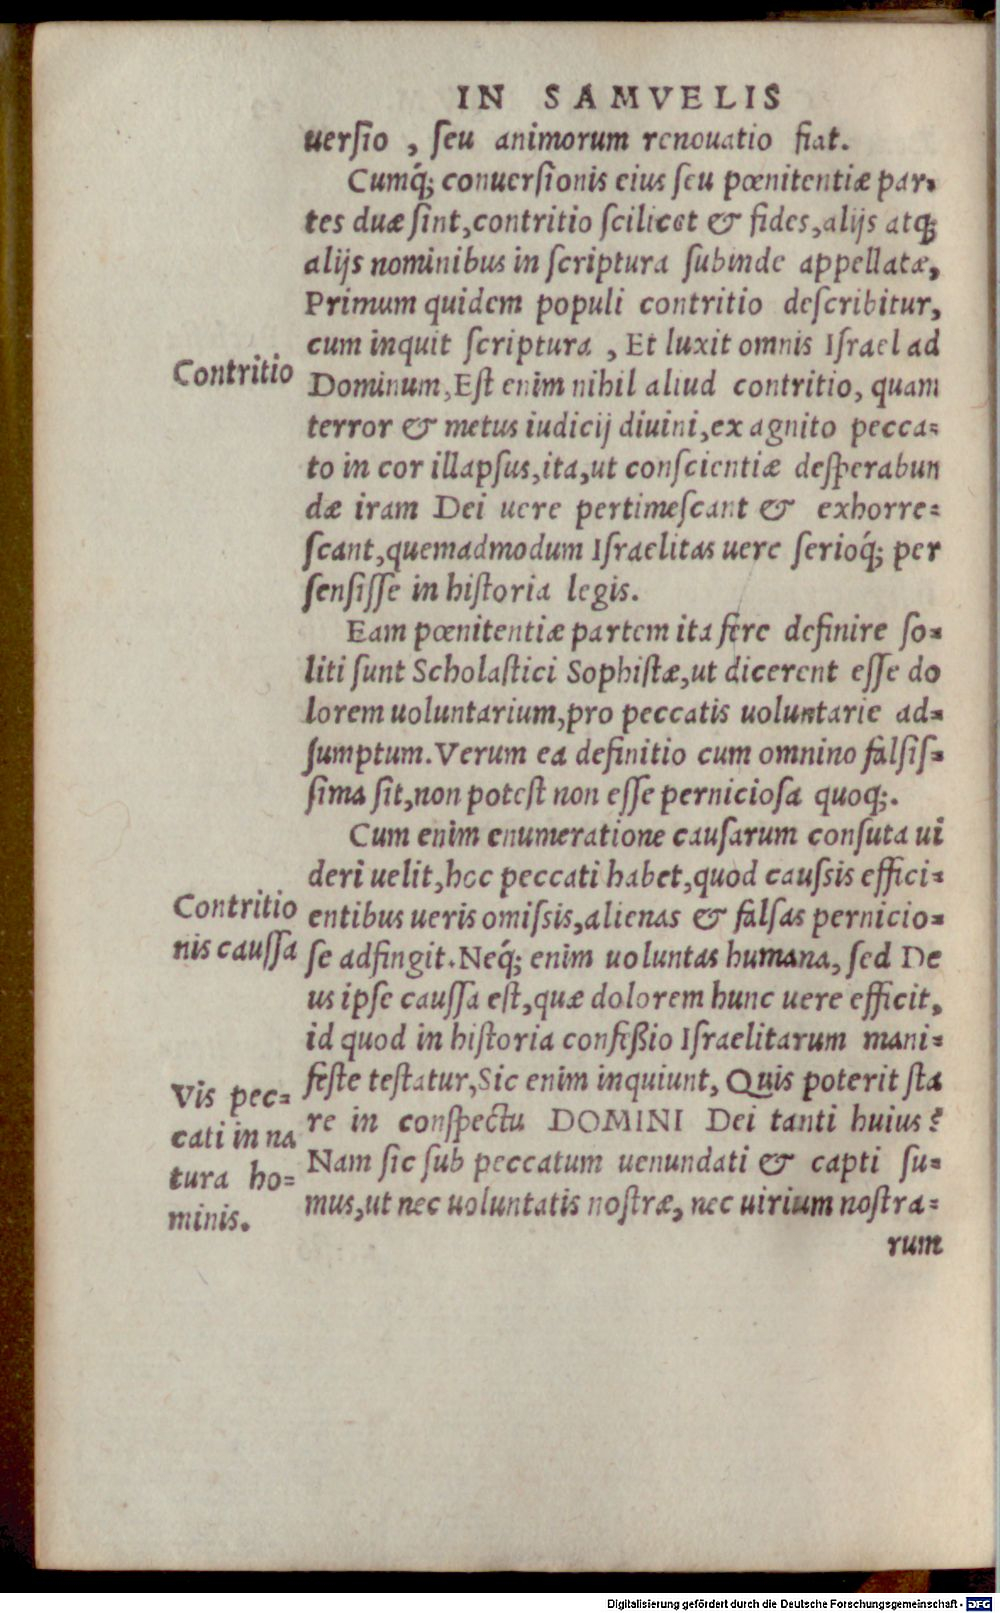 IN SAMVELIS
uerſio , ſeu animorum renouatio fiat.
Cumq́; conuerſionis eius ſeu pœnitentiæ par-
tes duæ ſint,contritio ſcilicet & fides,alijs atq;
alijs nominibus in ſcriptura ſubinde appellatæ,
Primum quidem populi contritio deſcribitur,
cum inquit ſcriptura , Et luxit omnis Iſrael ad
Contritio
Dominum,Eſt enim nihil aliud contritio, quam
terror & metus iudicij diuini,ex agnito pecca-
to in cor illapſus,ita,ut conſcientiæ deſperabun
dæ iram Dei uere pertimeſcant & exhorre-
ſcant,quemadmodum Iſraelitas uere ſerioq́; per
ſenſiſſe in hiſtoria legis.
Eam pœnitentiæ partem ita fere definire ſo-
liti ſunt Scholaſtici Sophiſtæ,ut dicerent eſſe do
lorem uoluntarium,pro peccatis uoluntarie ad-
ſumptum.Verum ea definitio cum omnino falſiſ-
ſima ſit,non poteſt non eſſe pernicioſa quoq;.
Cum enim enumeratione cauſarum conſuta ui
deri uelit,hoc peccati habet,quod cauſsis effici-
Contritio
entibus ueris omiſsis,alienas & falſas pernicio-
nis cauſſa
ſe adfingit.Neq́; enim uoluntas humana, ſed De
us ipſe cauſſa eſt,quæ dolorem hunc uere efficit,
id quod in hiſtoria confeßio Iſraelitarum mani-
feſte teſtatur,Sic enim inquiunt, Quis poterit ſta
Vis pec-
re in conſpectu DOMINI Dei tanti huius?
cati in na
Nam ſic ſub peccatum uenundati & capti ſu-
tura ho-
mus,ut nec uoluntatis noſtræ, nec uirium noſtra-
minis.
rum
Digitalisierung gefördert durch die Deutsche Forschungsgemeinschaft - DFG